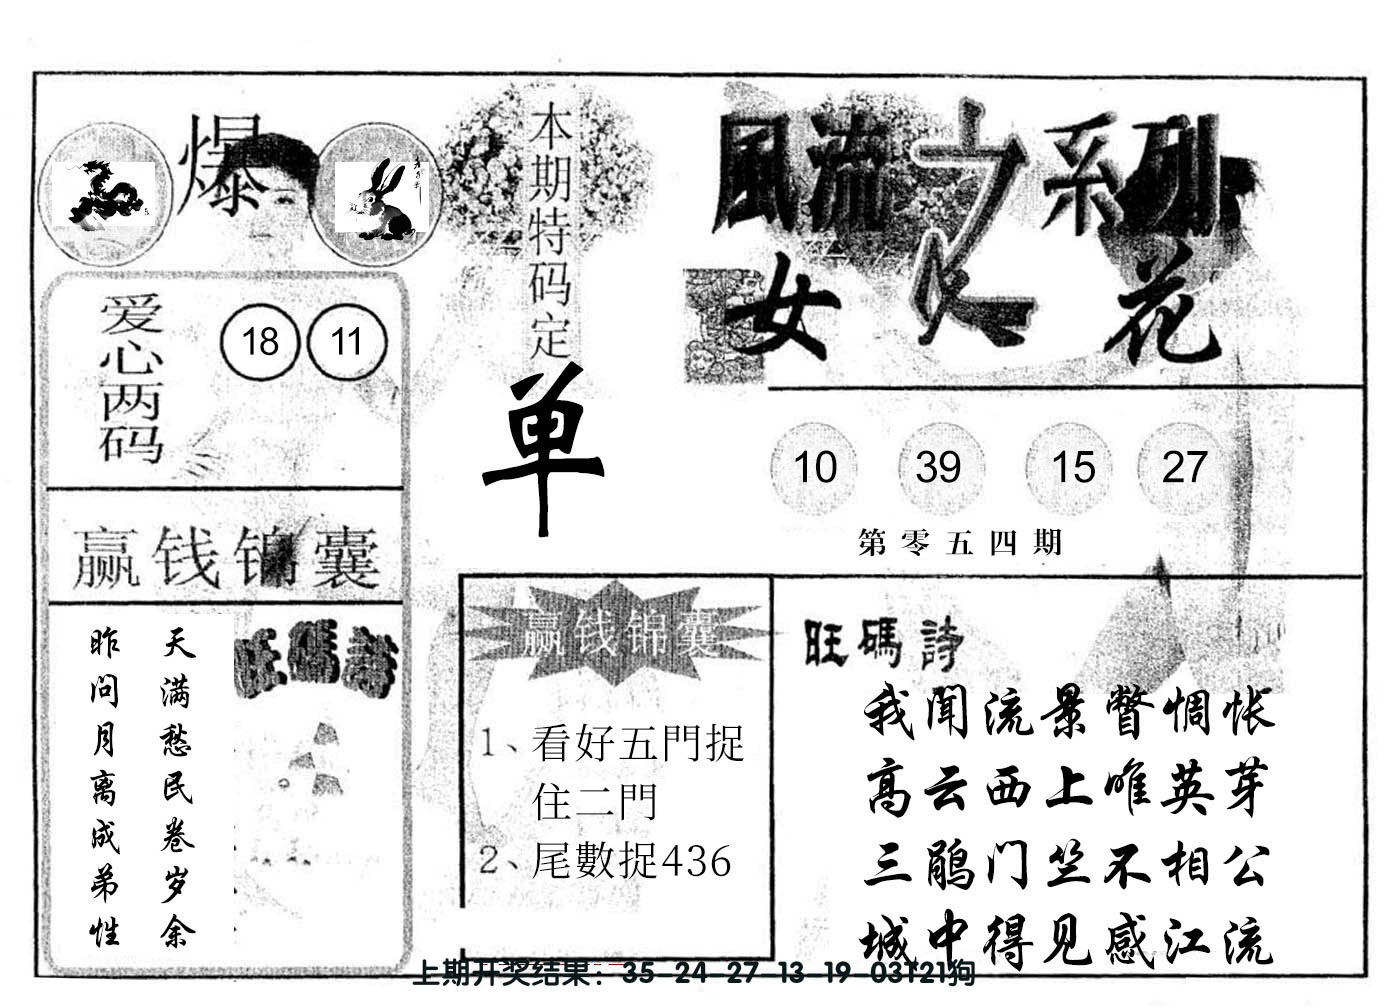 爆
本期特码定
单
風流之系列
女人花
爱心两码
18 11
10 39 15 27
第零五四期
赢钱锦囊
天满愁民卷岁余
昨问月离成弟性
旺碼詩
赢钱锦囊
1、看好五門捉
住二門
2、尾數捉436
旺碼詩
我闻流景瞥惆怅
高云西上唯英芽
三鹃门竺不相公
城中得见感江流
上期开奖结果：35-24-27-13-19-03T21狗